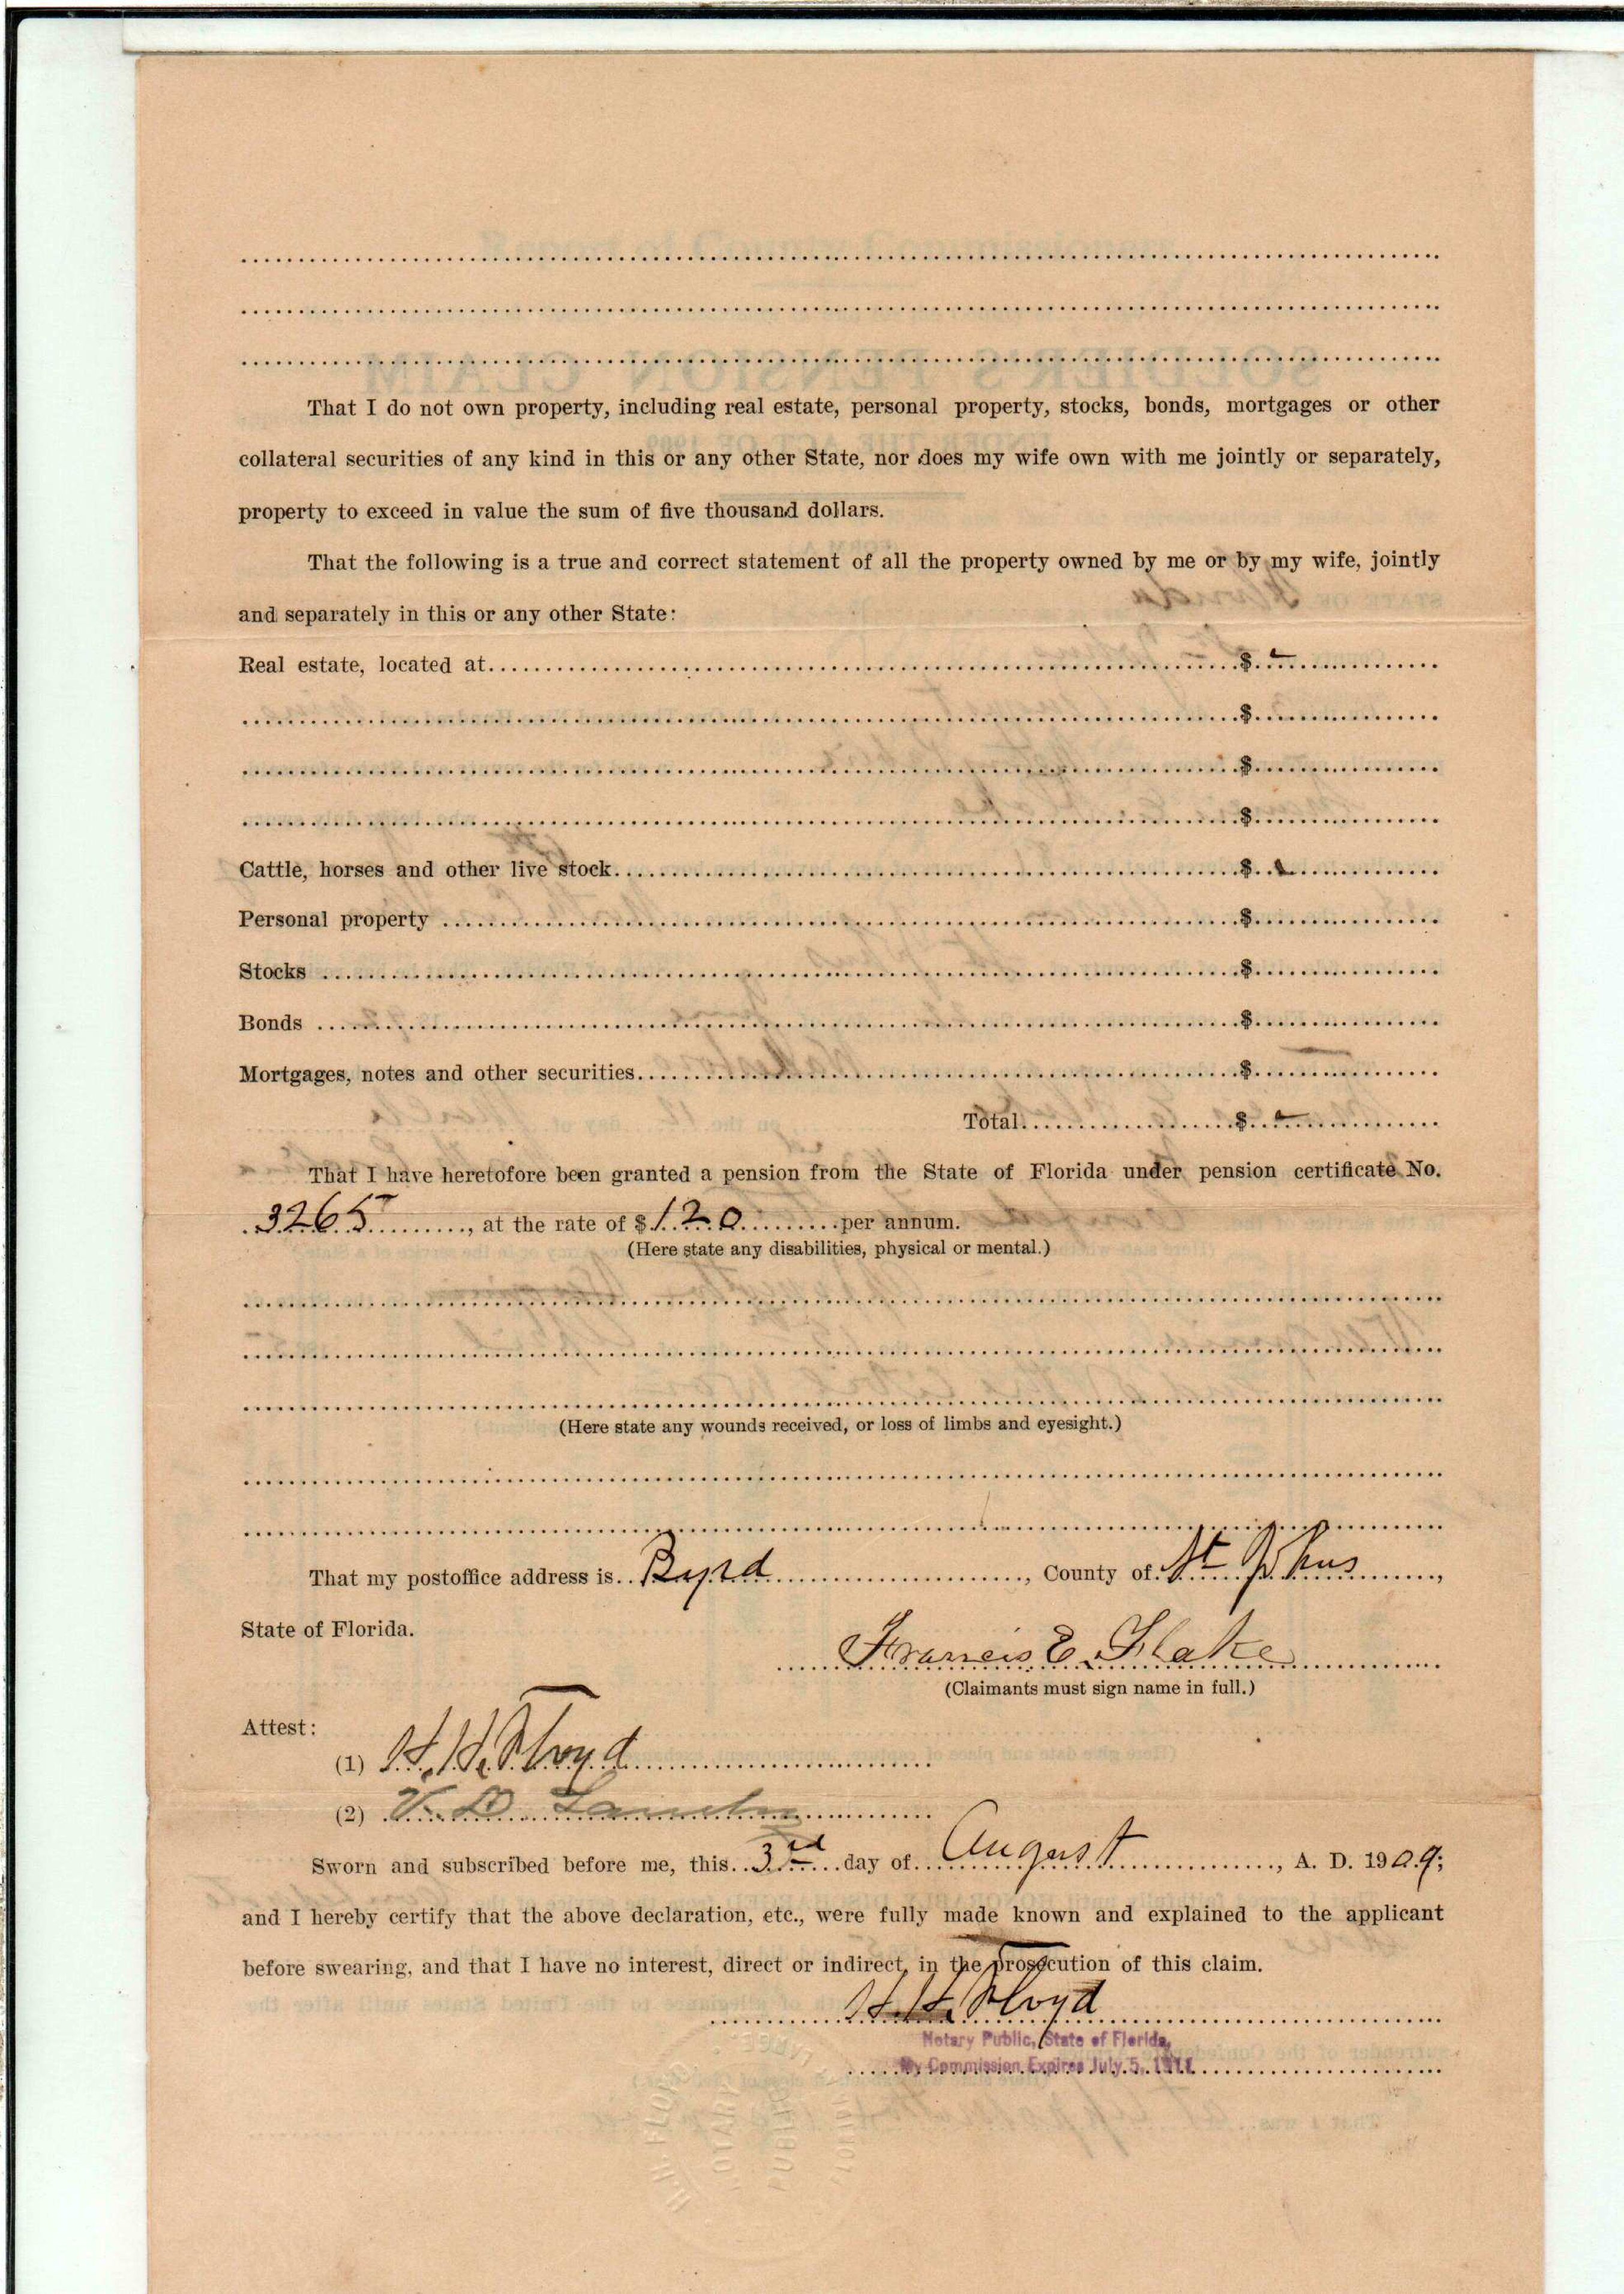 That I do not own property, including real estate, personal property, stocks, bonds, mortgages or other
collateral securities of any kind in this or any other State, nor does my wife own with me jointly or separately,
property to exceed in value the sum of five thousand dollars.
That the following is a true and correct statement of all the property owned by me or by my wife, jointly
and separately in this or any other State:
Real estate, located at $
$
$
$
Cattle, horses and other live stock $
Personal property $
Stocks $
Bonds $
Mortgages, notes and other securities $
Total $
That I have heretofore been granted a pension from the State of Florida under pension certificate No.
3265, at the rate of $ 120 per annum.
(Here state any disabilities, physical or mental.)
(Here state any wounds received, or loss of limbs and eyesight.)
That my postoffice address is Byrd, County of St Johns,
State of Florida.
Francis E. Flake
(Claimants must sign name in full.)
Attest:
(1) H. H. Floyd
(2) V. D.
Sworn and subscribed before me, this 3rd day of August, A. D. 1909;
and I hereby certify that the above declaration, etc., were fully made known and explained to the applicant
before swearing, and that I have no interest, direct or indirect, in the prosecution of this claim.
H. H. Floyd
Notary Public, State of Florida,
My Commission Expires July 5, 1911